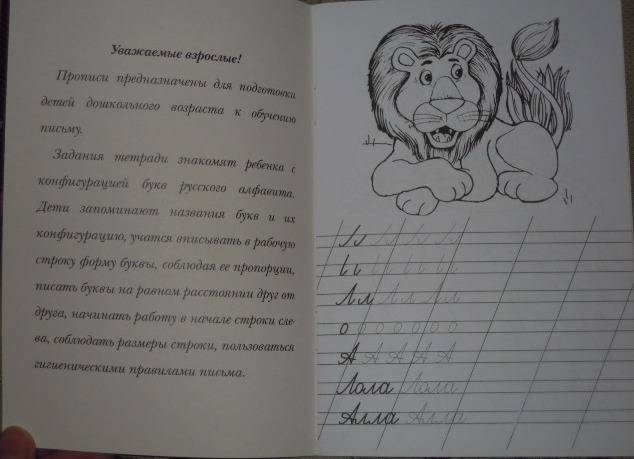 Уважаемые взрослые!
Прописи предназначены для подготовки
детей дошкольного возраста к обучению
письму.
Задания тетради знакомят ребенка с
конфигурацией букв русского алфавита.
Дети запоминают названия букв и их
конфигурацию, учатся вписывать в рабочую
строку форму буквы, соблюдая ее пропорции,
писать буквы на равном расстоянии друг от
друга, начинать работу в начале строки сле-
ва, соблюдать размеры строки, пользоваться
гигиеническими правилами письма.
Лл Лл Лл
о о о о о о о
А А А А А
Лола Лола
Алла Алла